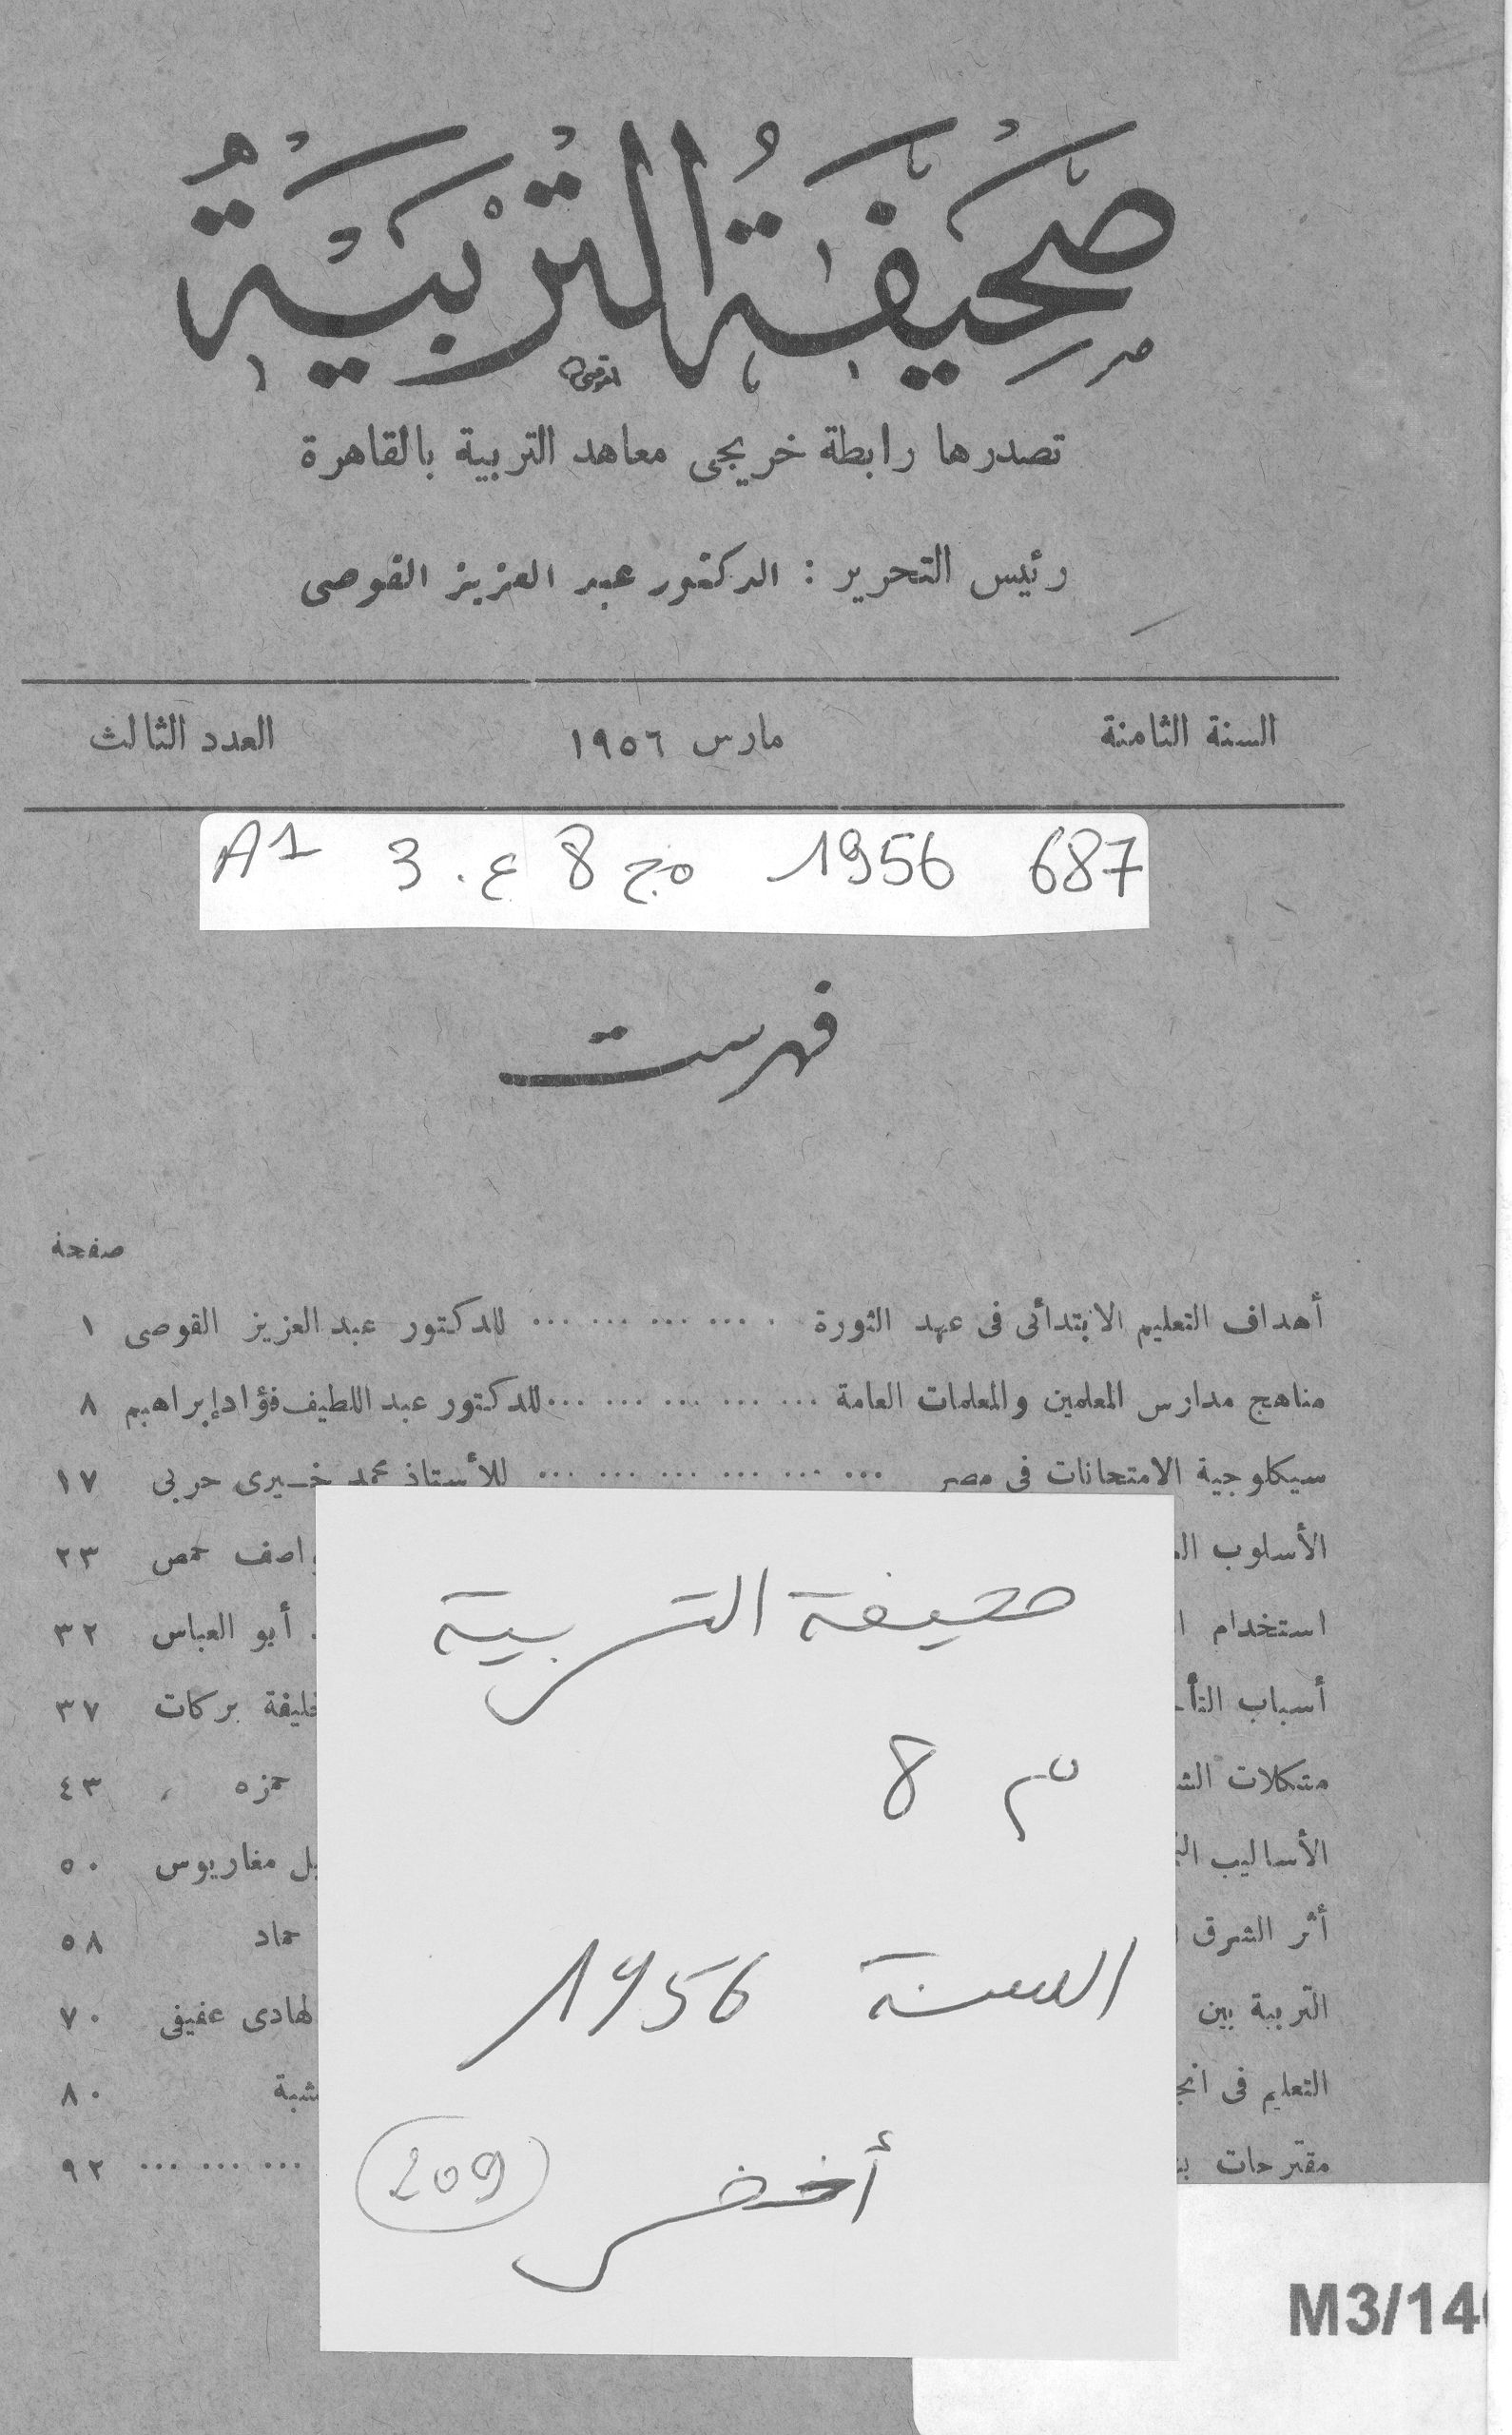 صَحِيفَةُ التَّرْبِيَةِ
تصدرها رابطة خريجى معاهد التربية بالقاهرة
رئيس التحرير : الدكتور عبد العزيز القوصى
السنة الثامنة مارس ١٩٥٦ العدد الثالث
687 1956 مج 8 ع. 3 A1
فهرست
صفحة
أهداف التعليم الابتدائى فى عهد الثورة . ... ... ... ... للدكتور عبد العزيز القوصى ١
مناهج مدارس المعلمين والمعلمات العامة ... ... ... ... ... للدكتور عبد اللطيف فؤاد إبراهيم ٨
سيكلوجية الامتحانات فى مصر ... ... ... ... ... ... للأستاذ محمد خيرى حربى ١٧
الأسلوب حمص ٢٣
استخدام أبو العباس ٣٢
أسباب بركات ٣٧
مشكلات حمزه ٤٣
الأساليب مغاريوس ٥٠
أثر الشرق حماد ٥٨
التربية بين عفيفى ٧٠
التعليم فى ٨٠
مقترحات ... ... ... ٩٢
صحيفة التربية
م 8
السنة 1956
أخضر
209
M3/14